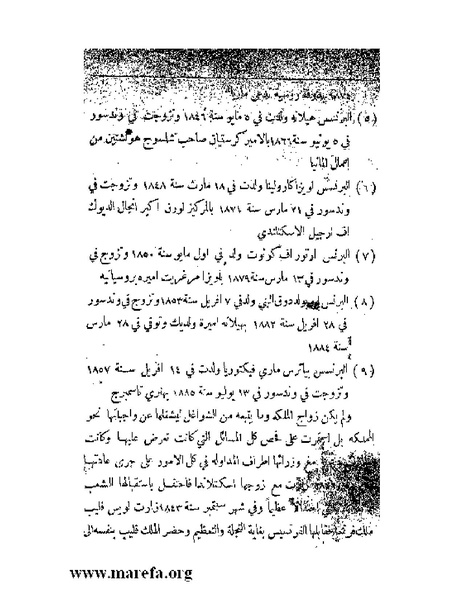 (٥) البرنسس هيلانه ولدت في ٥ مايو سنة ١٨٤٦ وتزوجت في وندسور
في ٥ يوليو سنة ١٨٦٦ بالامير كرستيان صاحب شلسوج هولشتين من
اعمال المانيا
(٦) البرنسس لويزا كارولينا ولدت في ١٨ مارث سنة ١٨٤٨ وتزوجت في
وندسور في ٢١ مارس سنة ١٨٧١ بالمركيز لورن اكبر انجال الديوك
اف ارجيل الاسكتلندي
(٧) البرنس اوتور اف كونوت ولد في اول مايو سنة ١٨٥٠ وتزوج في
وندسور في ١٣ مارس سنة ١٨٧٩ بلويزا مرغريت اميرة بروسيانيه
(٨) البرنس دوق البني ولد في ٧ افريل سنة ١٨٥٣ وتزوج في وندسور
في ٢٨ افريل سنة ١٨٨٢ بهيلانه اميرة ولديك وتوفي في ٢٨ مارس
سنة ١٨٨٤
(٩) البرنسس بياترس ماري فيكتوريا ولدت في ١٤ افريل سنة ١٨٥٧
وتزوجت في وندسور في ٢٣ يوليو سنة ١٨٨٥ بهنري باتمبرج
ولم يكن زواج الملكه وما يتبعه من الشواغل ليشغلها عن واجباتها نحو
المملكه بل استمرت على فحص كل المسائل التي كانت تعرض عليها وكانت
مع وزرائها اطراف المداوله في كل الامور على جري عادتها
مع زوجها اسكتلاندا فاحتفل باستقبالها الشعب
احتفالاً عظيماً وفي شهر سبتمبر سنة ١٨٤٣ زارت لويس فليب
ملك فرنسا فقابلها الفرنسيس بغاية التجلة والتعظيم وحضر الملك فليب بنفسه الى
www.marefa.org